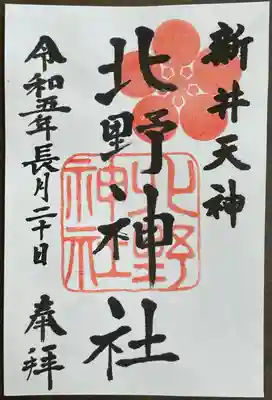 新井天神
北野神社
北野
神社
令和五年長月二十日
奉拝